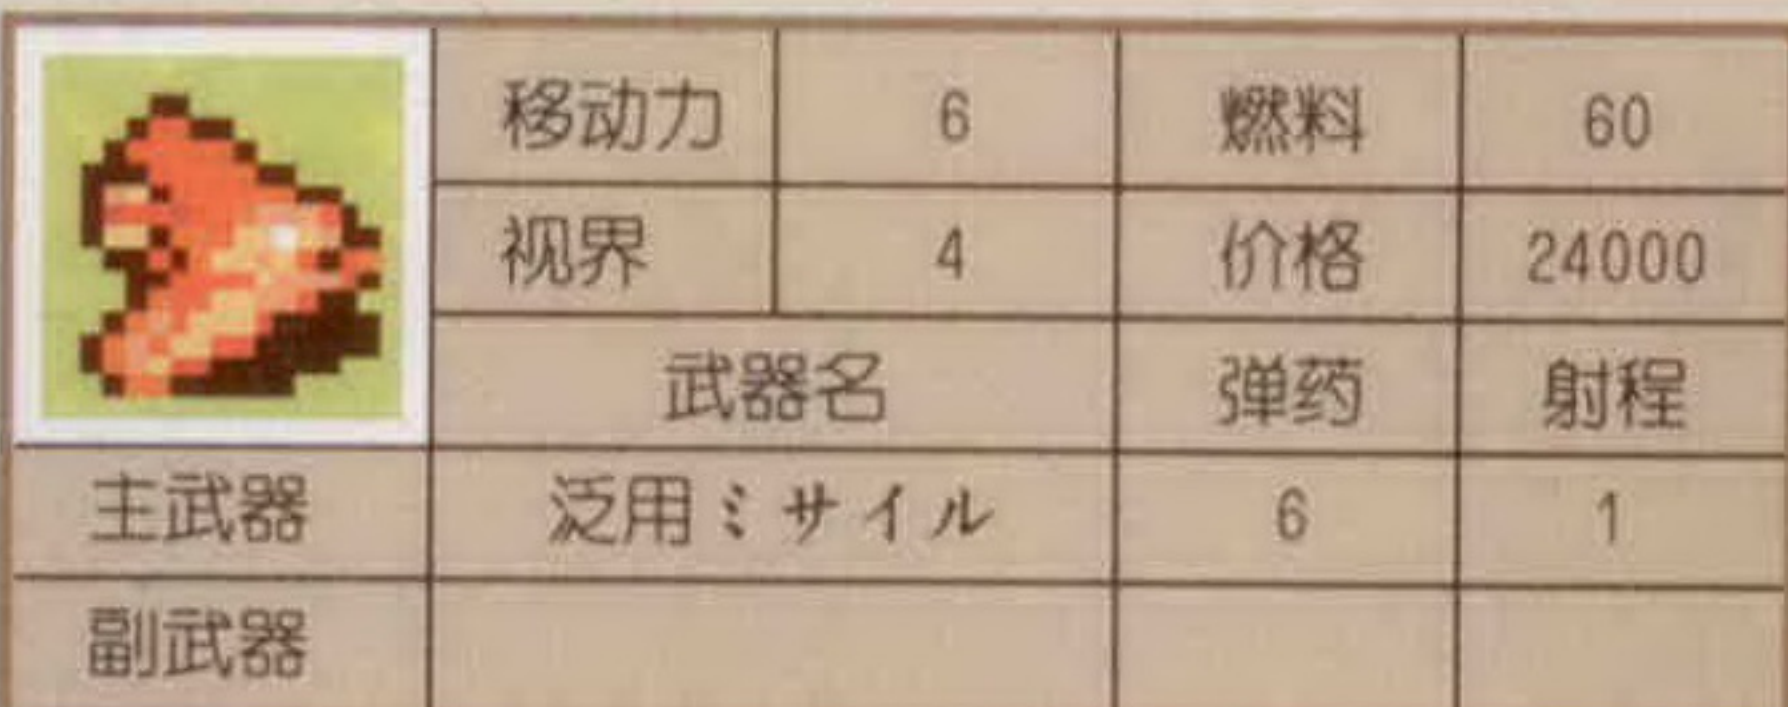 移动力 6 燃料 60
视界 4 价格 24000
武器名 弹药 射程
主武器 泛用ミサイル 6 1
副武器